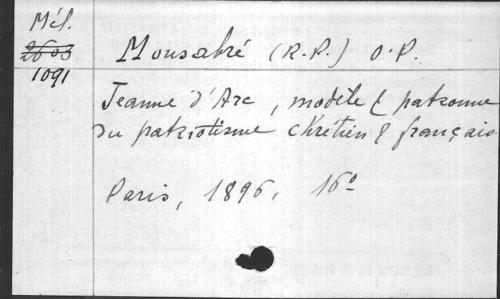 Mél.
2603
1091
Monsabré (R.P.) O.P.
Jeanne d'Arc, modèle & patronne
du patriotisme chrétien & français
Paris, 1896. 16º